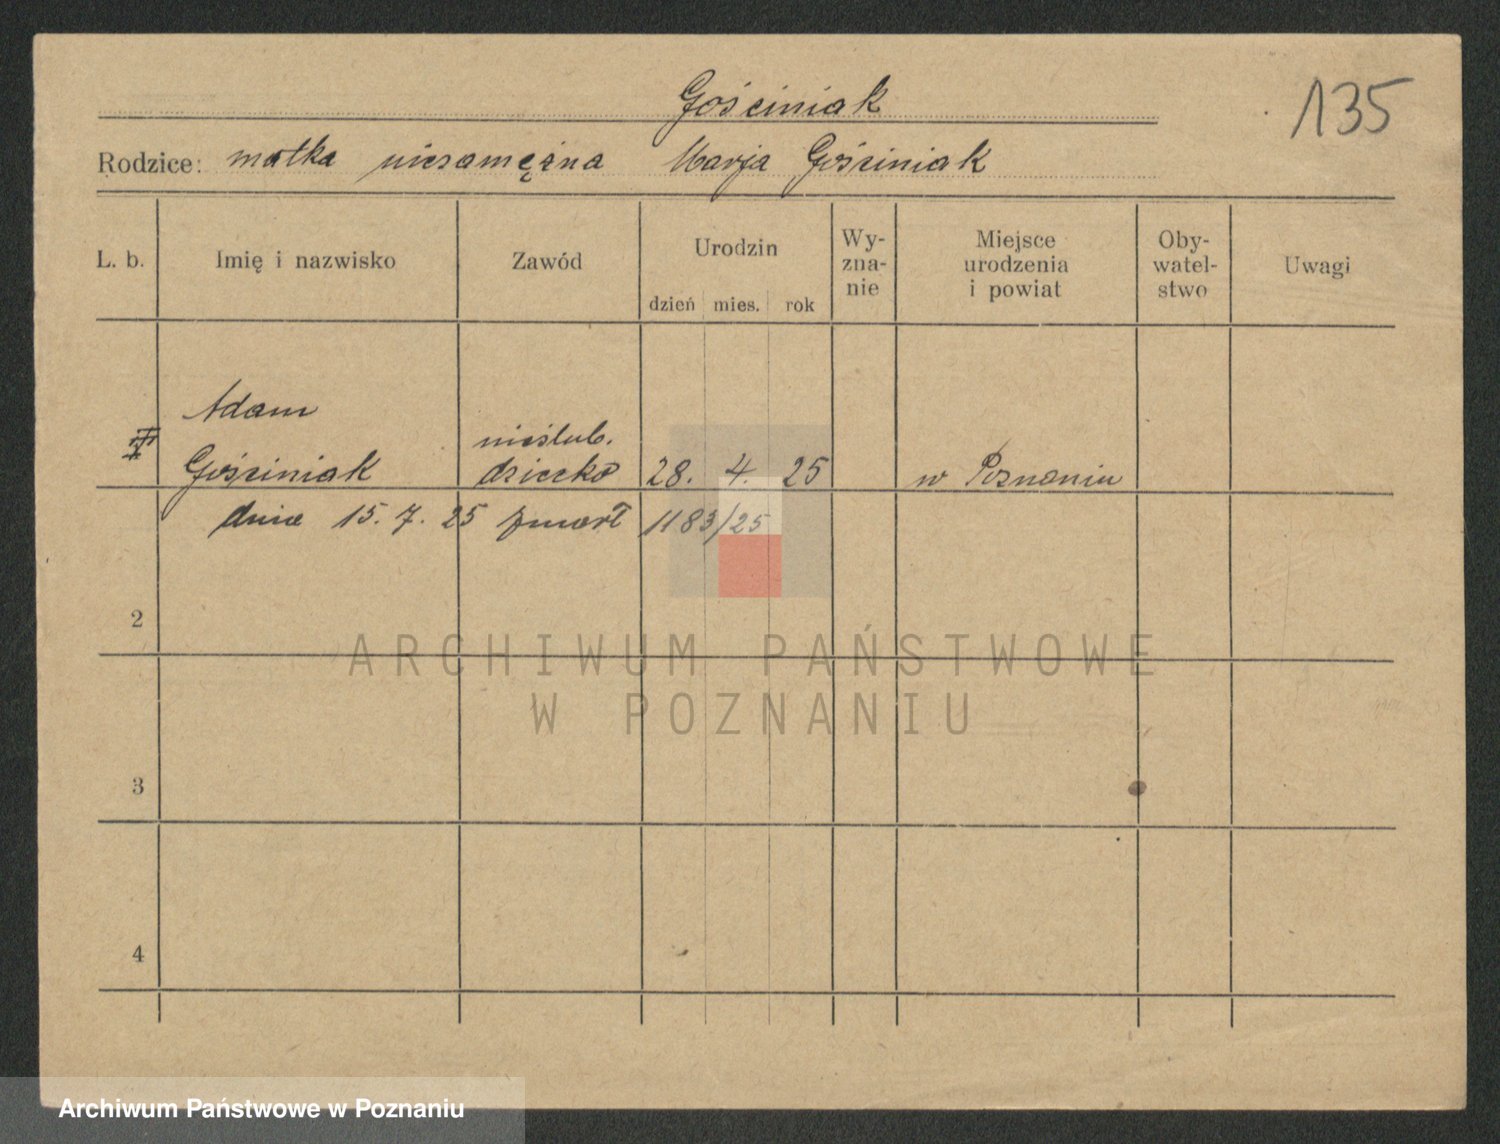 Gościniak
135
Rodzice: matka niezamężna Marja Gościniak
L. b. Imię i nazwisko Zawód Urodzin Wy-zna-nie Miejsce urodzenia i powiat Oby-watel-stwo Uwagi
dzień mies. rok
Adam
nieślub.
Gościniak dziecko 28. 4. 25 w Poznaniu
dnia 15. 7. 25 zmarł 1183/25
2
ARCHIWUM PAŃSTWOWE
W POZNANIU
3
4
Archiwum Państwowe w Poznaniu